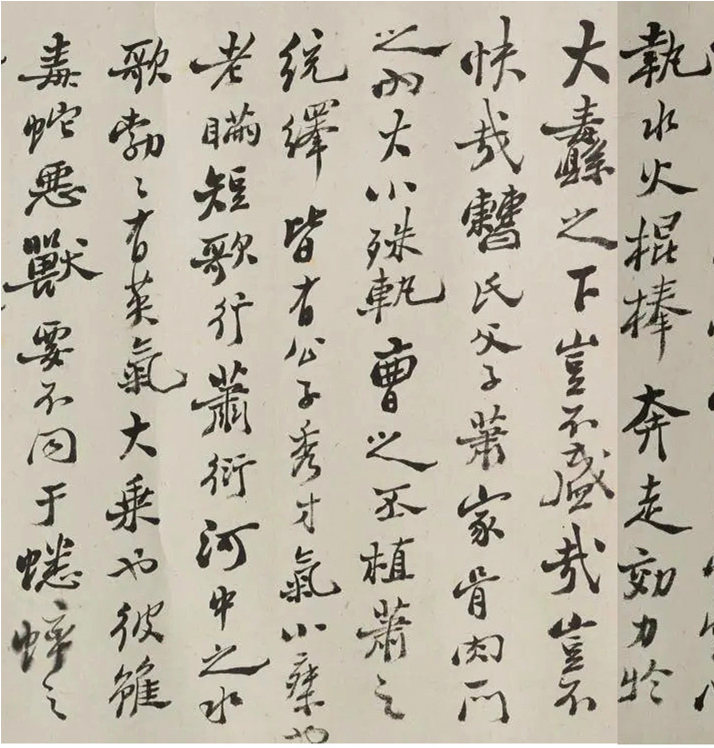 執水火棍棒奔走効力於
大纛之下豈不盛哉豈不
快哉曹氏父子蕭家骨肉門
之內大小殊軌曹之丕植蕭之
統繹皆有公子秀才氣小乘也
老瞞短歌行蕭衍河中之水
歌勃〻有英氣大乘也彼雖
毒蛇惡獸要不同于蟋蟀之